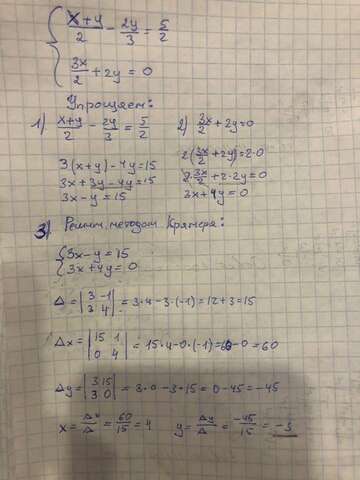 { x+y/2 - 2y/3 = 5/2
3x/2 + 2y = 0
Упрощаем:
1) x+y/2 - 2y/3 = 5/2
3(x+y) - 4y = 15
3x + 3y - 4y = 15
3x - y = 15
2) 3x/2 + 2y = 0
2(3x/2 + 2y) = 2·0
2·3x/2 + 2·2y = 0
3x + 4y = 0
3) Решим методом Крамера:
{ 3x - y = 15
3x + 4y = 0
Δ = | 3 -1 / 3 4 | = 3·4 - 3·(-1) = 12 + 3 = 15
Δx = | 15 1 / 0 4 | = 15·4 - 0·(-1) = 60 - 0 = 60
Δy = | 3 15 / 3 0 | = 3·0 - 3·15 = 0 - 45 = -45
x = Δx/Δ = 60/15 = 4 y = Δy/Δ = -45/15 = -3